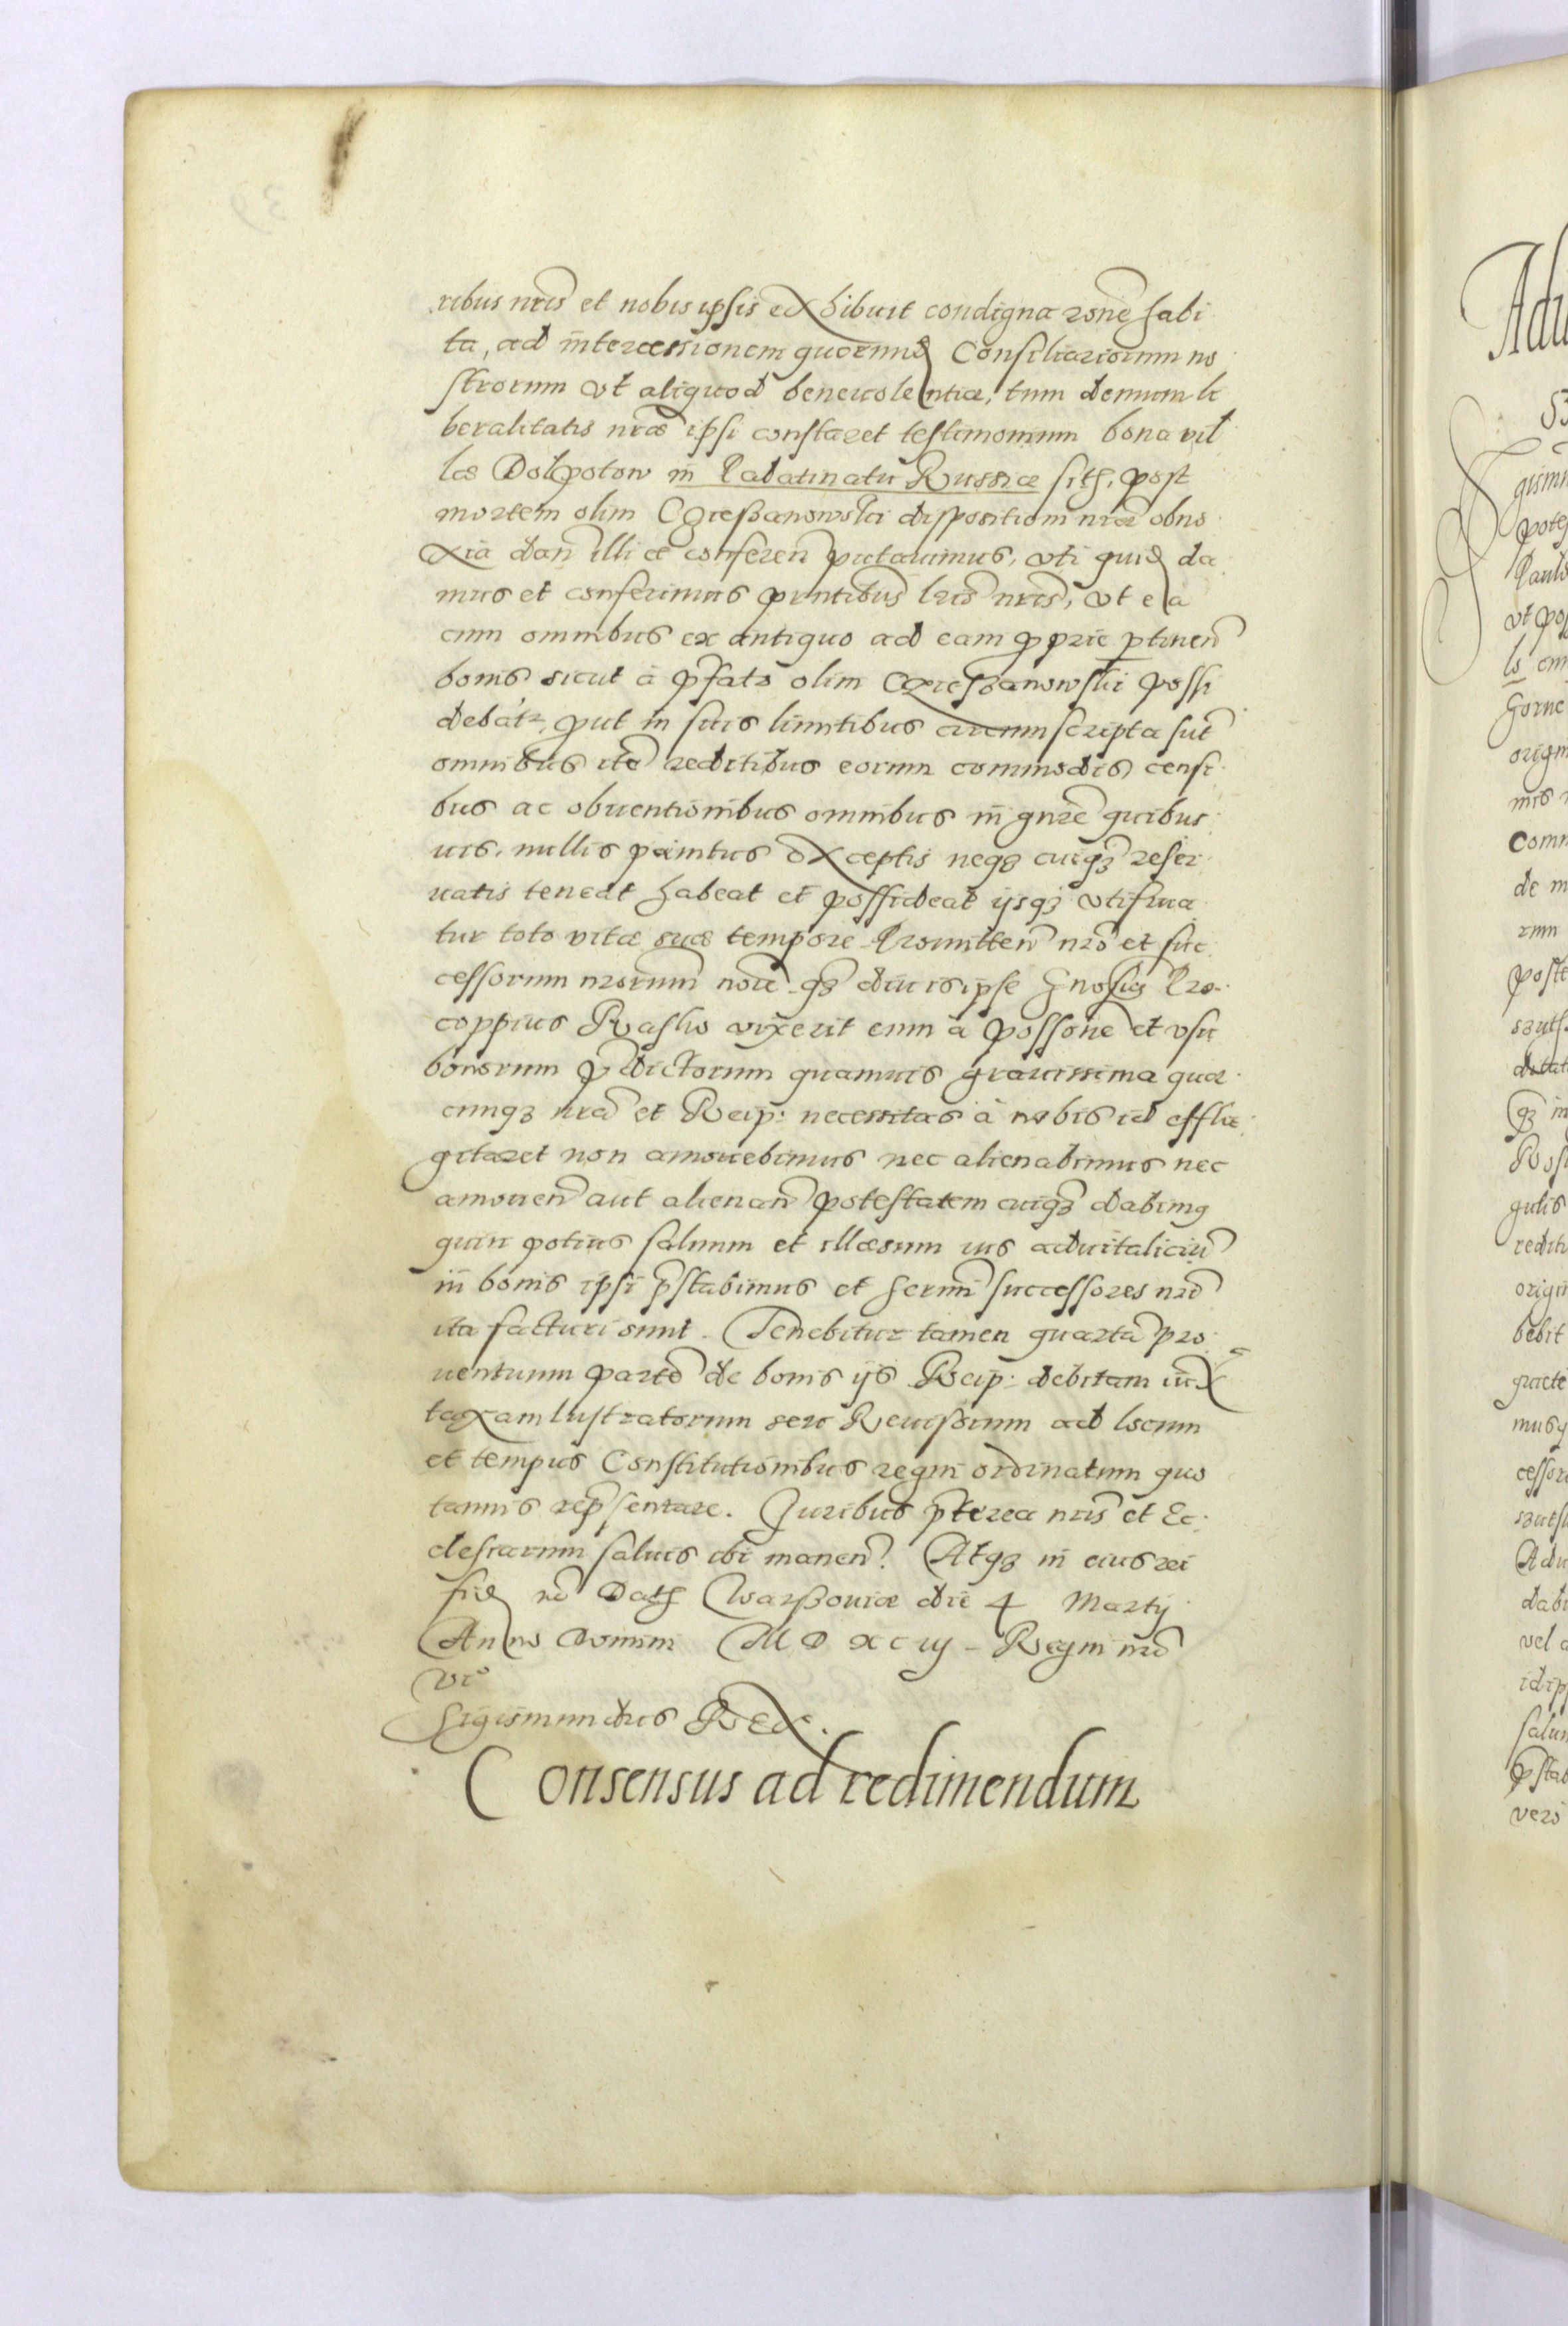 ribus nris et nobis ipsis exhibuit condigna rone habi
ta, ad intercessionem quorund Consiliariorum no
strorum vt aliquod beneuolentiae, tum demum li
beralitatis nrae ipsi constaret testimonium bona vil
lae Dolpotow in Palatinatu Russiae sith, post
mortem olim dispositioni nrae obno
xia dan illi ac conferen putauimus, vti quid da
mus et conferimus pntibus lris nris, vt ea
cum omnibus ex antiquo ad eam proprie ptinen
bonis sicut à pfato olim possi
debatr, put in suis limitibus circumscripta sut
omnibus ite reditibus eorum commodis censi
bus ac obuentionibus omnibus in gnre quibus
uis, nullis penitus exceptis neqz cuiqz reser
uatis teneat habeat et possideat ijsqz vtifrua
tur toto vitae suae tempore Promitten nro et suc
cessorum nrorum noie qz diu is ipse Gnosus Pro
coppius Raslio vixerit eum a possone et vsu
bonorum pdictorum quamuis grauissima quae
cunqz nra et Reip: necessitas à nobis id efflа
gitaret non amouebimus nec alienabimus nec
amouen aut alienan potestatem cuiqz dabimus
quin potius saluum et illaesum ius aduitaliciu
in bonis ipsi pstabimus et sermi successores nri
ita facturi sunt. Tenebitur tamen quarta pro
uentuum parte de bonis ijs Reip: debitam iux
taxam lustratorum seu Reuisorum ad locum
et tempus Constitutionibus regni ordinatum quo
tannis repsentare. Juribus pterea nris et Ec
clesiarum saluis ibi manen. Atqz in eius rei
fid Dath Warßouiae die 4 Martij
Anno Domini M D XC iij Regni nri
vi°
Sigismundus Rex.
Consensus ad redimendum